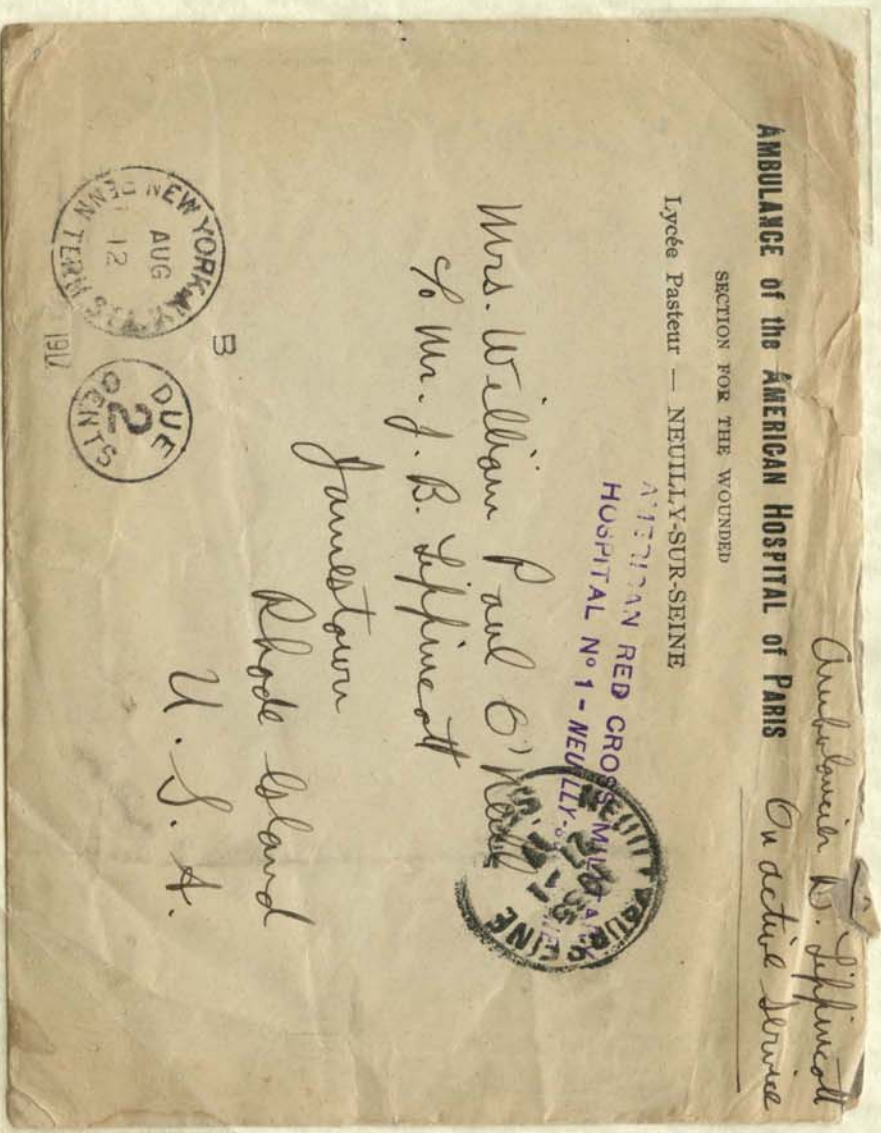 Ambulancier D. Lippincott
On active service
AMBULANCE of the AMERICAN HOSPITAL of PARIS
SECTION FOR THE WOUNDED
Lycée Pasteur — NEUILLY-SUR-SEINE
AMERICAN RED CROSS MILITARY
HOSPITAL Nº 1 - NEUILLY-
Mrs. William Paul O'Neill
c/o Mr. J. B. Lippincott
Jamestown
Rhode Island
U. S. A.
NEUILLY SUR SEINE
NEW YORK, N.Y.
PENN TERM. S
AUG
12
191
B
DUE
2
CENTS